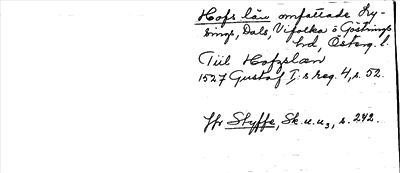 Hofs län omfattade Ly-
sings, Dals, Vifolka o Göstrings
hrd, Österg. l.
Till Hofzlæn
1527 Gustaf I:s reg. 4, s. 52.
Jfr Styffe, Sk. u. u3, s. 242.